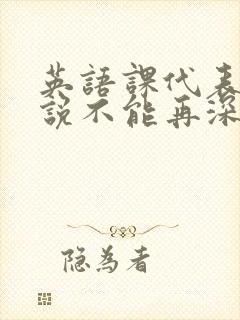 英語課代表
說不能再深
隐為者